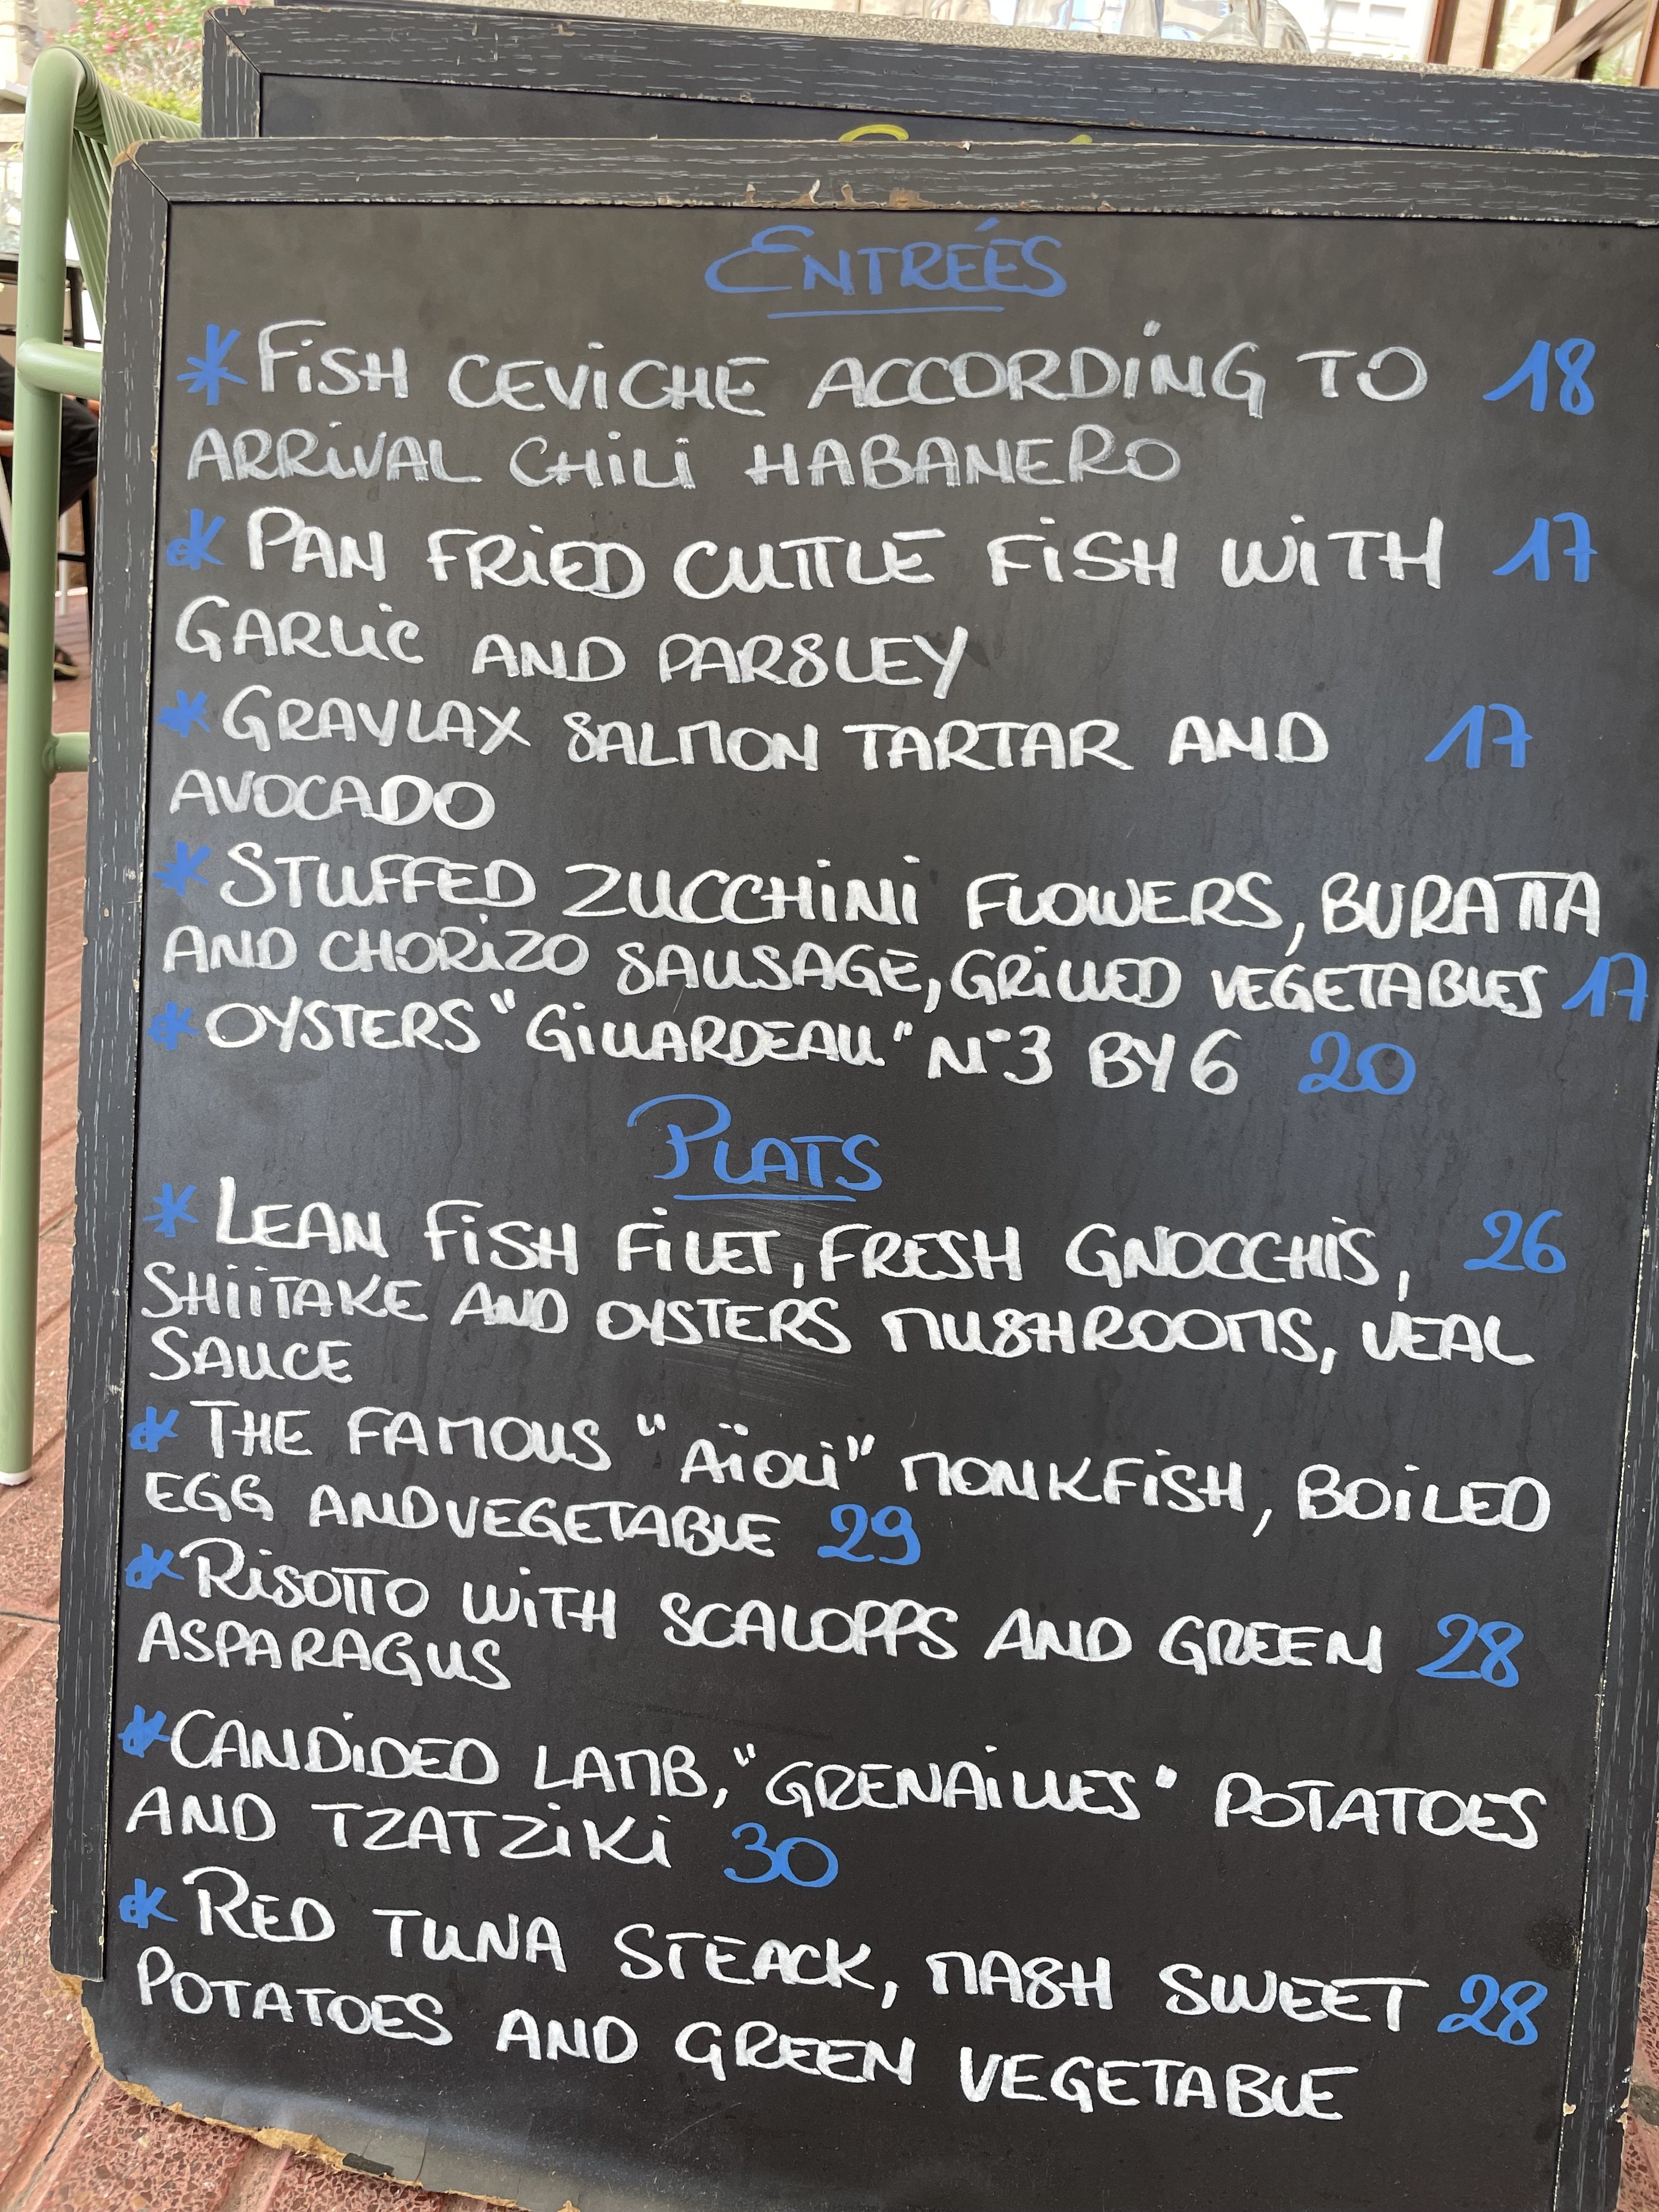 ENTRÉES
* FISH CEVICHE ACCORDING TO 18
ARRIVAL CHILI HABANERO
* PAN FRIED CUTTLE FISH WITH 17
GARLIC AND PARSLEY
* GRAVLAX SALMON TARTAR AND 17
AVOCADO
* STUFFED ZUCCHINI FLOWERS, BURATTA
AND CHORIZO SAUSAGE, GRILLED VEGETABLES 17
* OYSTERS "GILLARDEAU" N°3 BY 6 20
PLATS
* LEAN FISH FILET, FRESH GNOCCHIS, 26
SHIITAKE AND OYSTERS MUSHROOMS, VEAL
SAUCE
* THE FAMOUS "AÏOLI" MONKFISH, BOILED
EGG AND VEGETABLE 29
* RISOTTO WITH SCALOPPS AND GREEN 28
ASPARAGUS
* CANDIDED LAMB, "GRENAILLES" POTATOES
AND TZATZIKI 30
* RED TUNA STEACK, MASH SWEET 28
POTATOES AND GREEN VEGETABLE